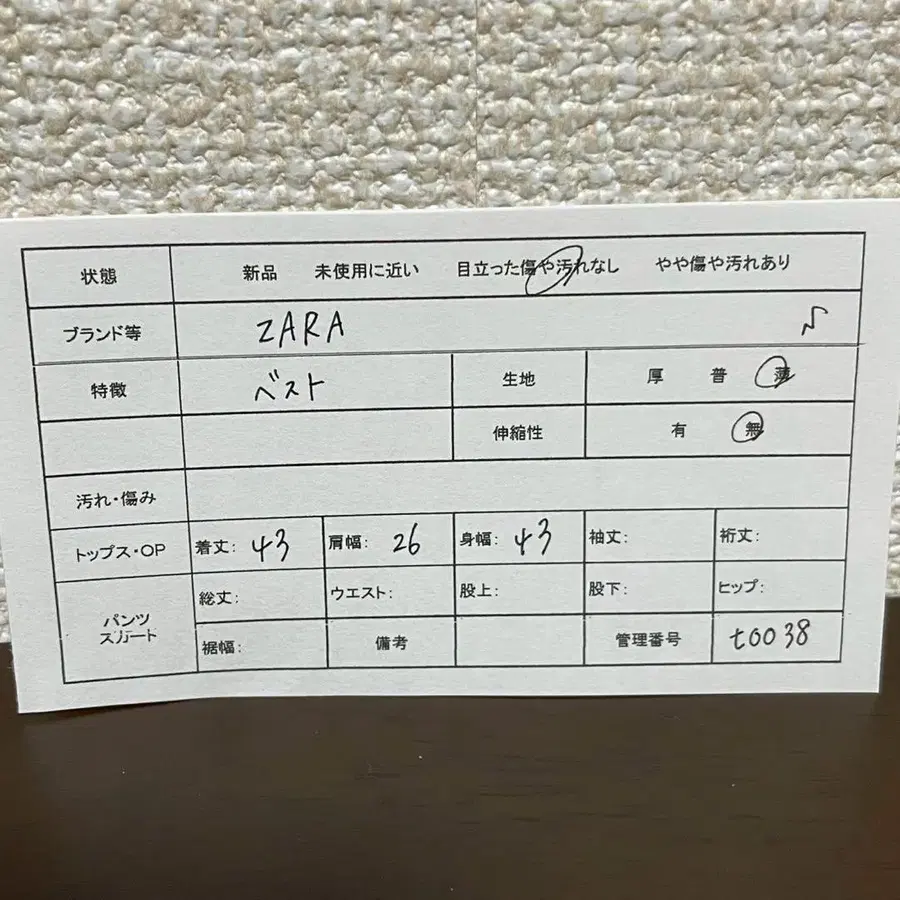 状態 新品 未使用に近い 目立った傷や汚れなし やや傷や汚れあり
ブランド等 ZARA
特徴 ベスト 生地 厚 普 薄
伸縮性 有 無
汚れ・傷み
トップス・OP 着丈: 43 肩幅: 26 身幅: 43 袖丈: 裄丈:
パンツ 総丈: ウエスト: 股上: 股下: ヒップ:
スカート 裾幅: 備考 管理番号 t0038